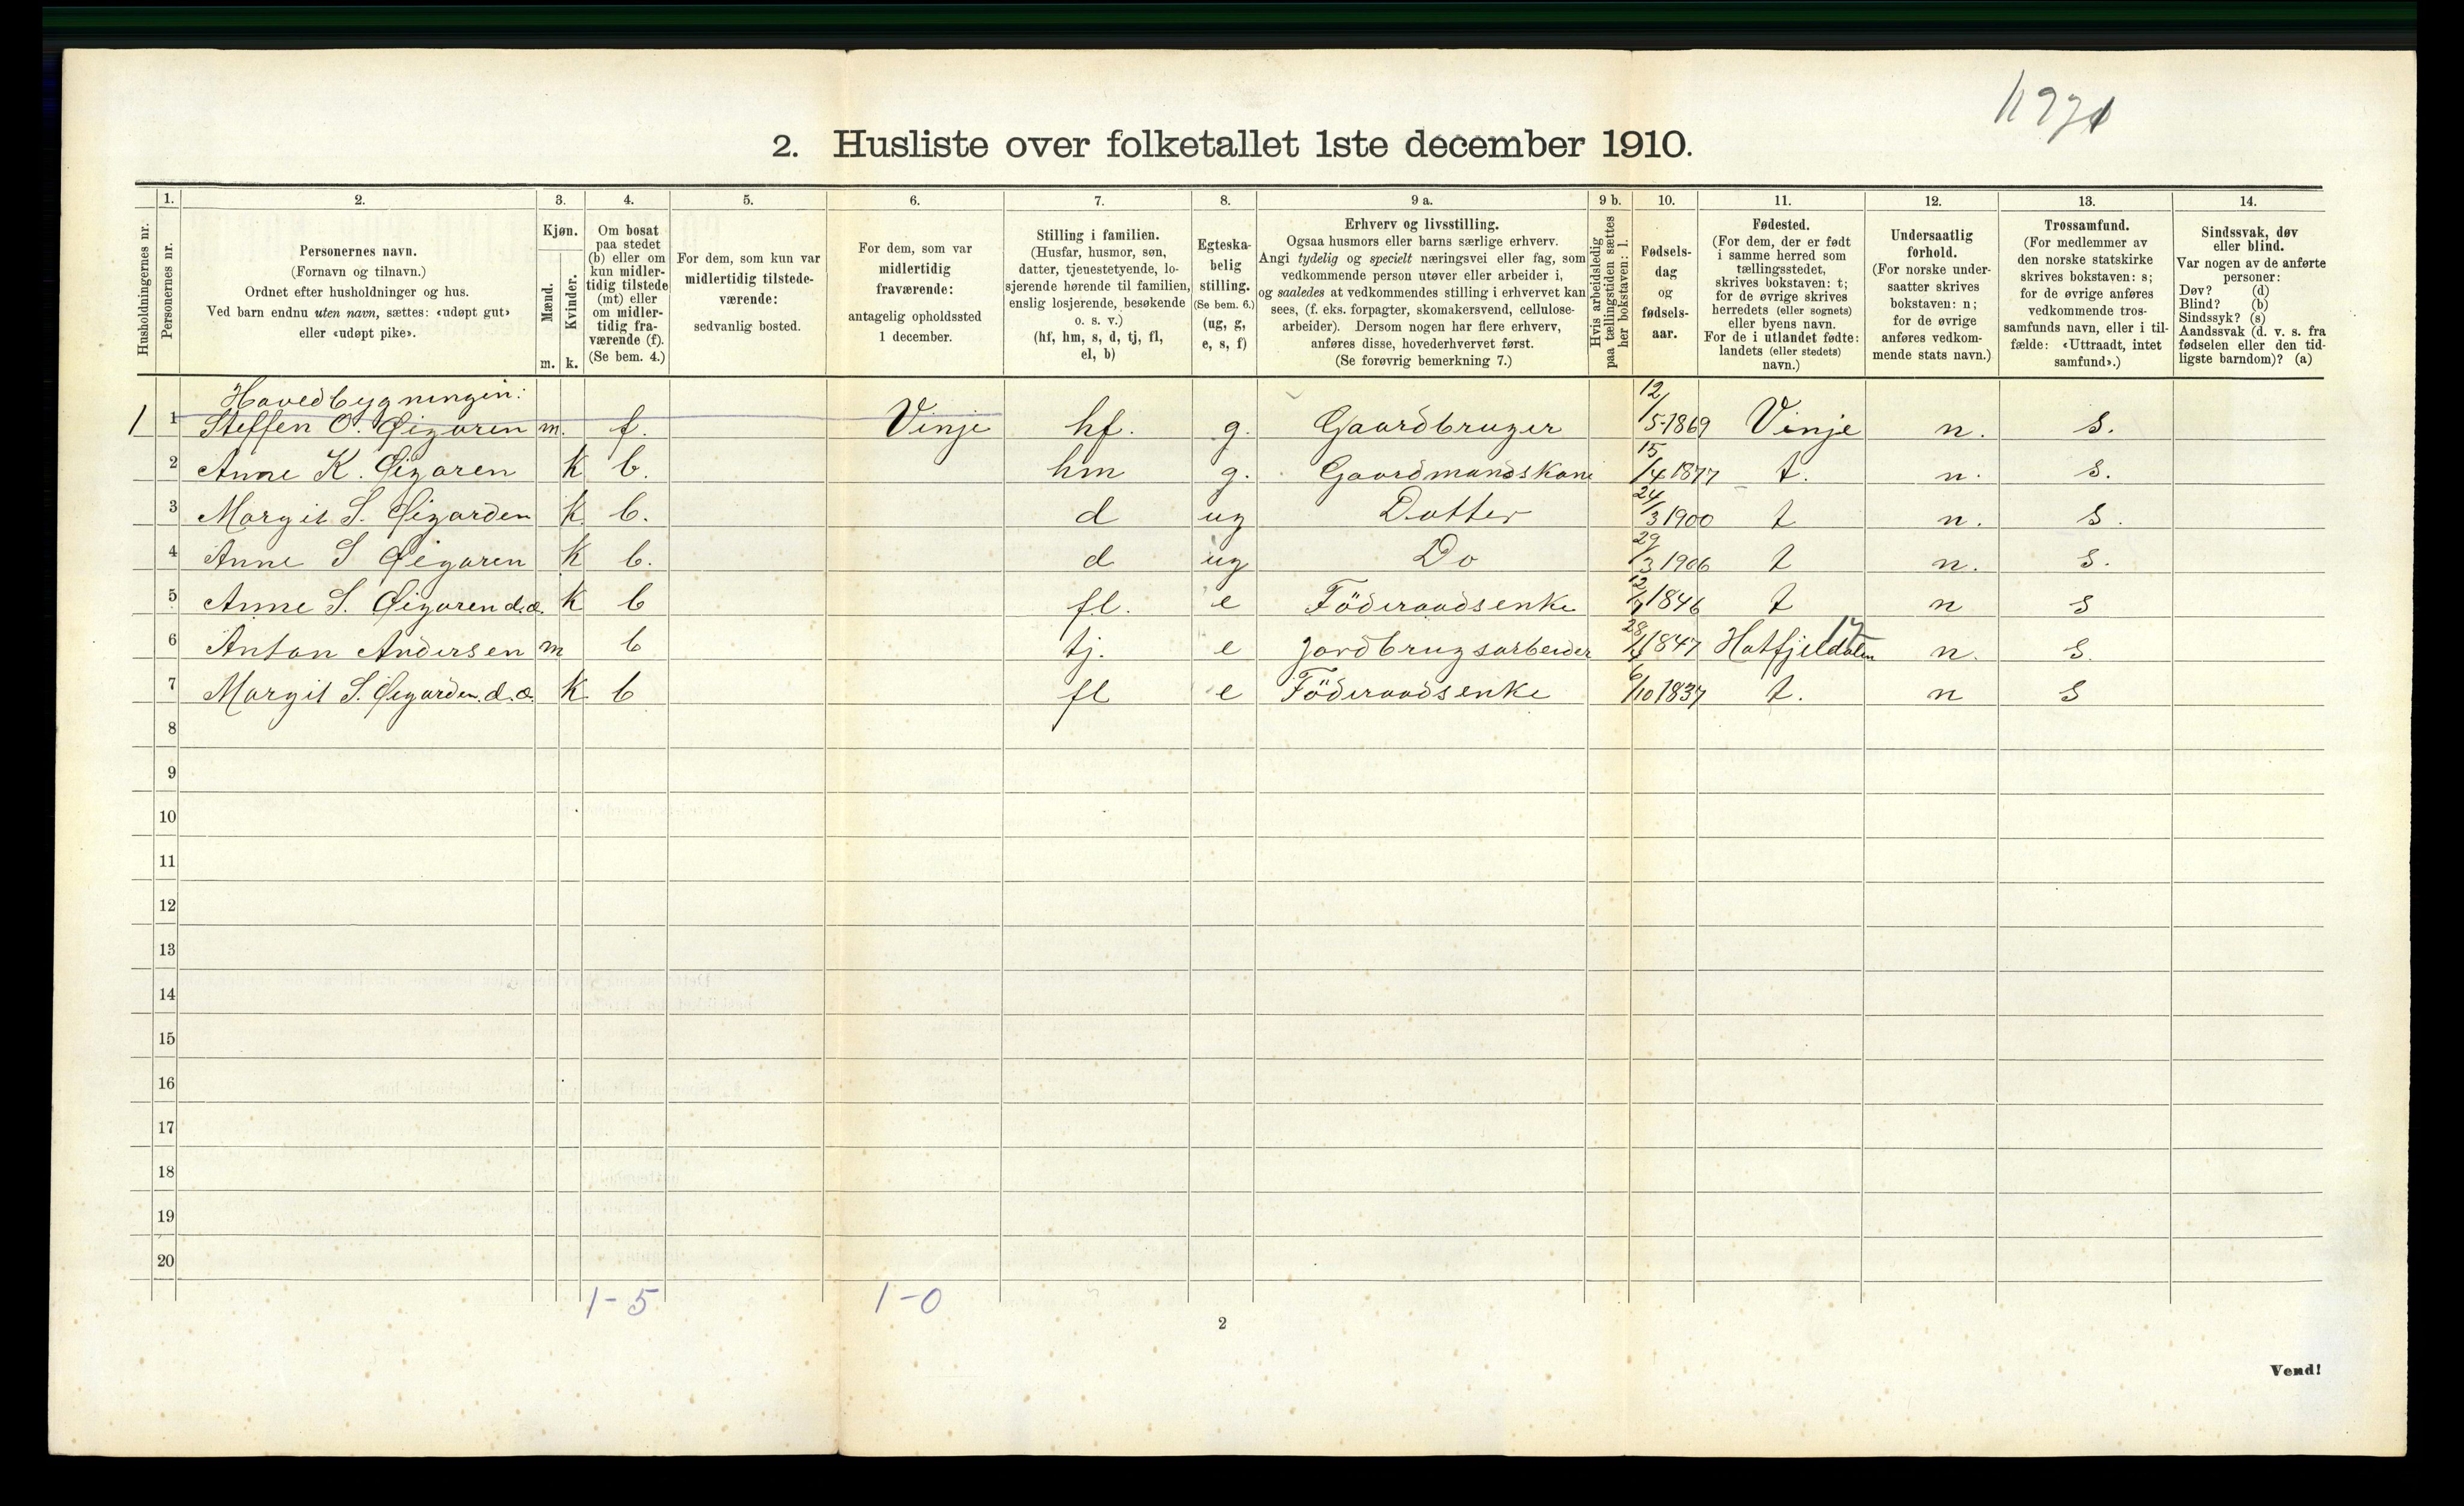 2. Husliste over folketallet 1ste december 1910.
Husholdningernes nr.
1.
Personernes nr.
2.
Personernes navn.
(Fornavn og tilnavn.)
Ordnet efter husholdninger og hus.
Ved barn endnu uten navn, sættes: «udøpt gut»
eller «udøpt pike».
3.
Kjøn.
Mænd.
m.
Kvinder.
k.
4.
Om bosat
paa stedet
(b) eller om
kun midler-
tidig tilstede
(mt) eller
om midler-
tidig fra-
værende (f).
(Se bem. 4.)
5.
For dem, som kun var
midlertidig tilstede-
værende:
sedvanlig bosted.
6.
For dem, som var
midlertidig
fraværende:
antagelig opholdssted
1 december.
7.
Stilling i familien.
(Husfar, husmor, søn,
datter, tjenestetyende, lo-
sjerende hørende til familien,
enslig losjerende, besøkende
o. s. v.)
(hf, hm, s, d, tj, fl,
el, b)
8.
Egteska-
belig
stilling.
(Se bem. 6.)
(ug, g,
e, s, f)
9 a.
Erhverv og livsstilling.
Ogsaa husmors eller barns særlige erhverv.
Angi tydelig og specielt næringsvei eller fag, som
vedkommende person utøver eller arbeider i,
og saaledes at vedkommendes stilling i erhvervet kan
sees, (f. eks. forpagter, skomakersvend, cellulose-
arbeider). Dersom nogen har flere erhverv,
anføres disse, hovederhvervet først.
(Se forøvrig bemerkning 7.)
9 b.
Hvis arbeidsledig
paa tællingstiden sættes
her bokstaven: l.
10.
Fødsels-
dag
og
fødsels-
aar.
11.
Fødested.
(For dem, der er født
i samme herred som
tællingsstedet,
skrives bokstaven: t;
for de øvrige skrives
herredets (eller sognets)
eller byens navn.
For de i utlandet fødte:
landets (eller stedets)
navn.)
12.
Undersaatlig
forhold.
(For norske under-
saatter skrives
bokstaven: n;
for de øvrige
anføres vedkom-
mende stats navn.)
13.
Trossamfund.
(For medlemmer av
den norske statskirke
skrives bokstaven: s;
for de øvrige anføres
vedkommende tros-
samfunds navn, eller i til-
fælde: «Uttraadt, intet
samfund».)
14.
Sindssvak, døv
eller blind.
Var nogen av de anførte
personer:
Døv? (d)
Blind? (b)
Sindssyk? (s)
Aandssvak (d. v. s. fra
fødselen eller den tid-
ligste barndom)? (a)
Hovedbygningin:
1 1 Steffen O. Øigaren m. f. Vinje hf. g. Gaardbruger 12/5-1869 Vinje n. s.
2 Anne K. Øigaren K b. hm g. Gaardmandskone 15/4 1877 t. n. s.
3 Margit S. Øigarden K b. d ug Datter 24/3 1900 t n. s.
4 Anne S Øigaren K b. d ug Do 29/3 1906 t n. s.
5 Anne S. Øigaren d.æ. K b fl. e Föderaadsenke 12/7 1846 t n s
6 Anton Andersen m b tj. e jordbrugsarbeider 1847 Hatfjeldalen n. s.
7 Margit S. Øigarden. d.æ. K b fl e Föderaadsenke 6/10 1837 t. n s
8
9
10
11
12
13
14
15
16
17
18
19
20
1-5 1-0
2
Vend!